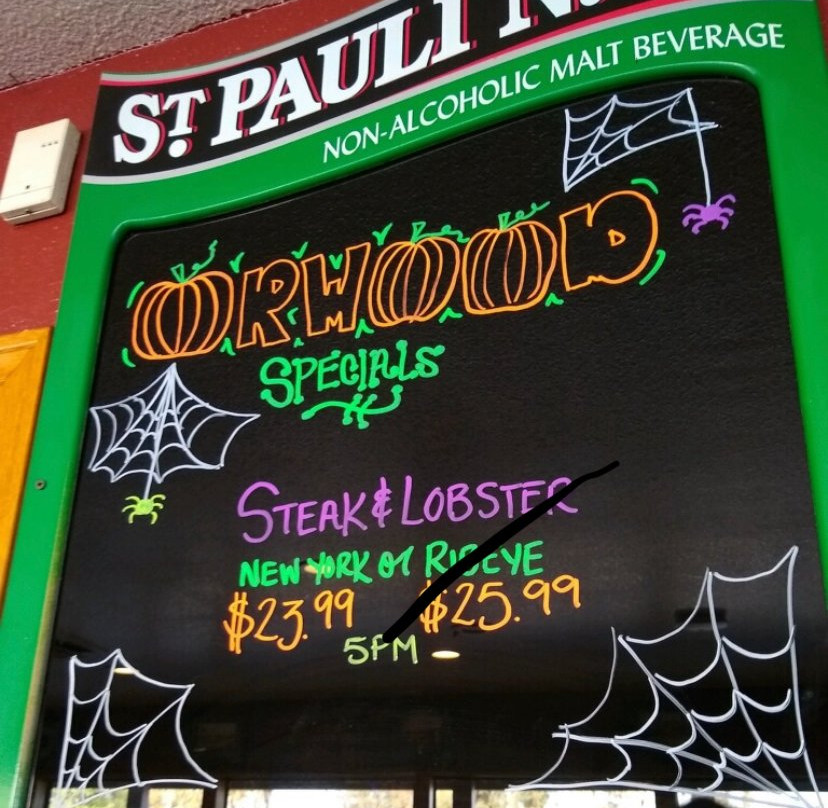 ST. PAULI N.
NON-ALCOHOLIC MALT BEVERAGE
ORWOOD
SPECIALS
STEAK & LOBSTER
NEW YORK or RIBEYE
$23.99 $25.99
5PM